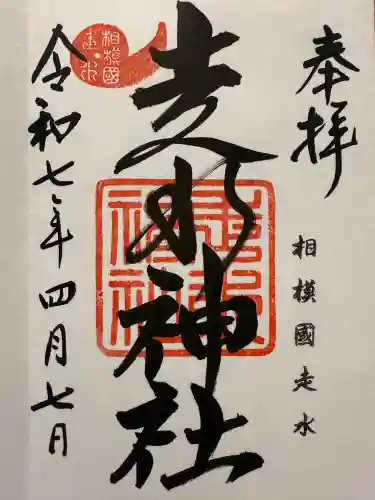 奉拝
相模國走水
走水神社
令和七年四月七日
相模國
走水
走水
神社